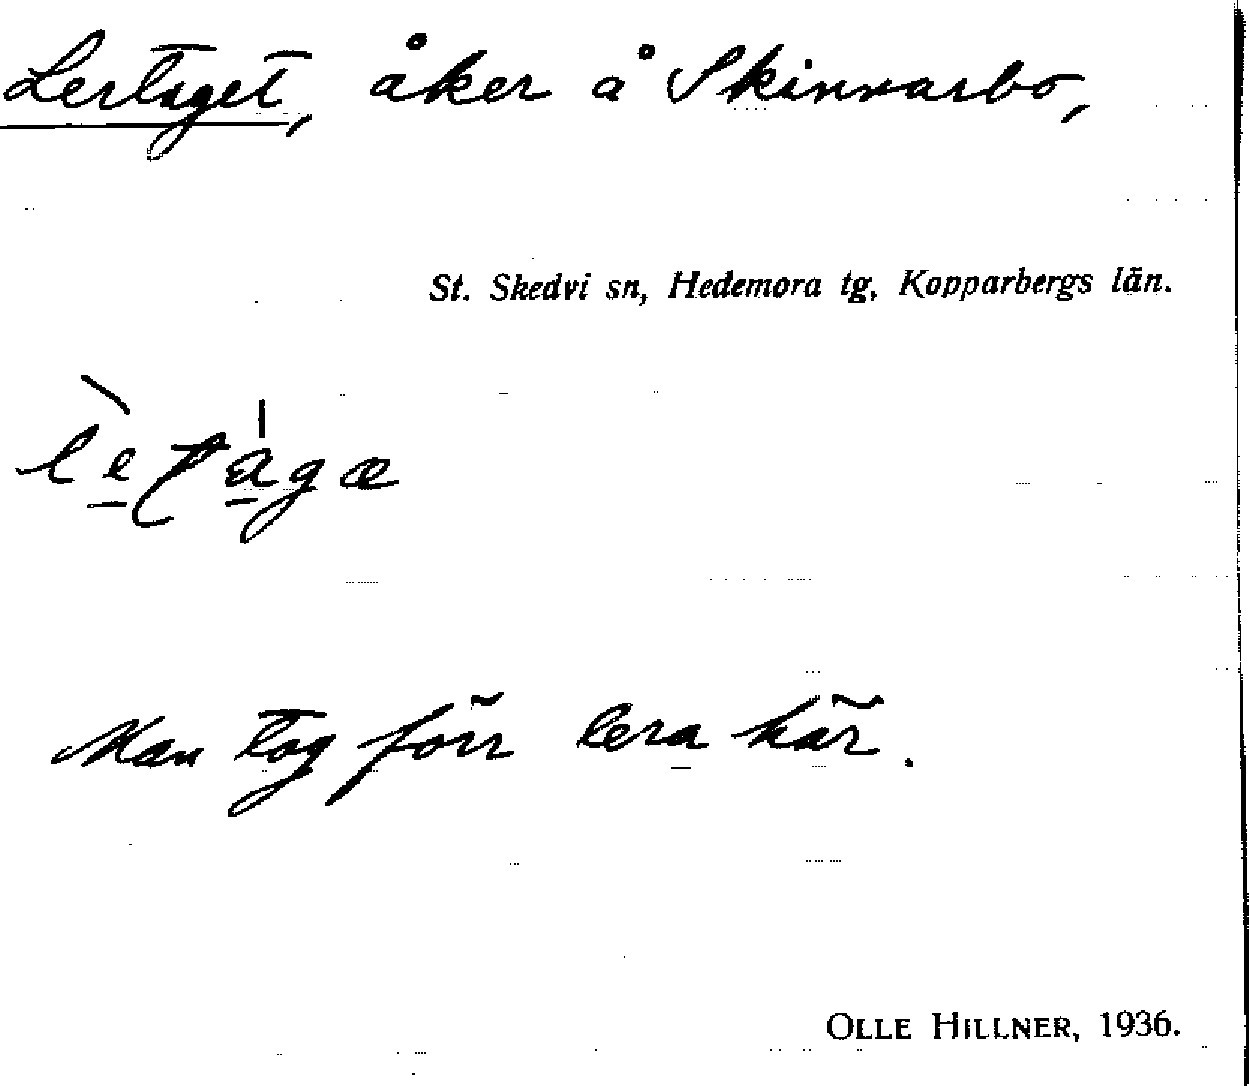 Lertaget, åker å Skinnarbo,
St. Skedvi sn, Hedemora tg, Kopparbergs län.
Man tog förr lera här.
OLLE HILLNER, 1936.